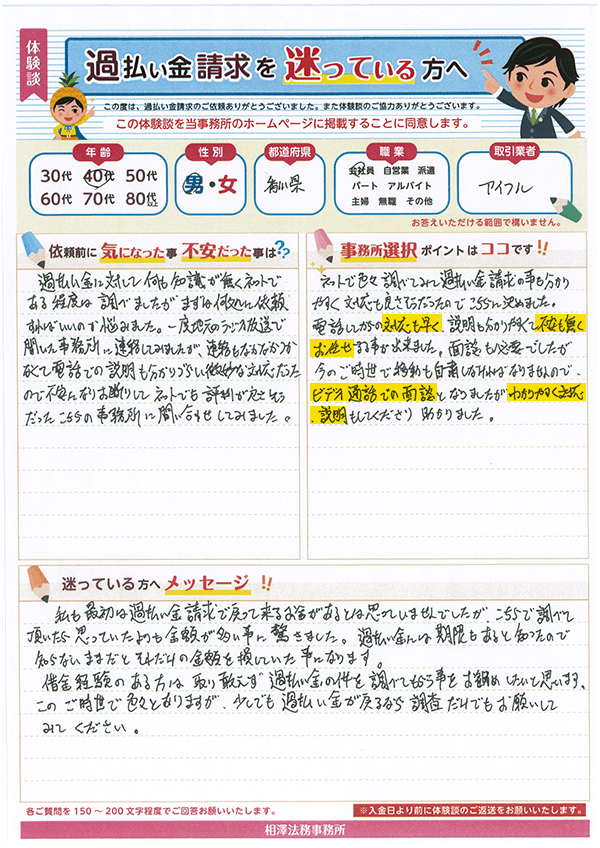 体験談
過払い金請求を迷っている方へ
この度は、過払い金請求のご依頼ありがとうございました。また体験談のご協力ありがとうございます。
この体験談を当事務所のホームページに掲載することに同意します。
年齢
30代 40代 50代
60代 70代 80代以上
性別
男・女
都道府県
香川県
職業
会社員 自営業 派遣
パート アルバイト
主婦 無職 その他
取引業者
アイフル
お答えいただける範囲で構いません。
依頼前に気になった事 不安だった事は??
過払い金に対して何も知識が無くネットで
ある程度は調べましたがまずは何処に依頼
すればいいのか悩みました。一度地元のラジオ放送で
聞いた事務所に連絡してみましたが、連絡もなかなかつか
なくて電話での説明も分かりづらい微妙な対応だった
ので不安になりお断りしてネットでも評判が良さそう
だったこちらの事務所に問い合わせしてみました。
事務所選択ポイントはココです!!
ネットで色々調べてみて過払い金請求の事も分かり
やすく対応も良さそうだったのでこちらに決めました。
電話してからの対応も早く、説明も分かりやすくて不安も無く
お任せする事が出来ました。面談も必要でしたが
今のご時世で移動も自粛しなければなりませんので、
ビデオ通話での面談となりましたがわかりやすく対応、
説明もしてくださり助かりました。
迷っている方へメッセージ!!
私も最初は過払い金請求で戻って来るお金があるとは思っていませんでしたが、こちらで調べて
頂いたら思っていたよりも金額が多い事に驚きました。過払い金には期限もあると知ったので
知らないままだとそれだけの金額を損していた事になります。
借金経験のある方は取り敢えず過払い金の件を調べてもらう事をお勧めしたいと思います、
このご時世で色々とありますが、少しでも過払い金が戻るなら調査だけでもお願いして
みてください。
各ご質問を150～200文字程度でご回答お願いいたします。
※入金日より前に体験談のご返送をお願いいたします。
相澤法務事務所